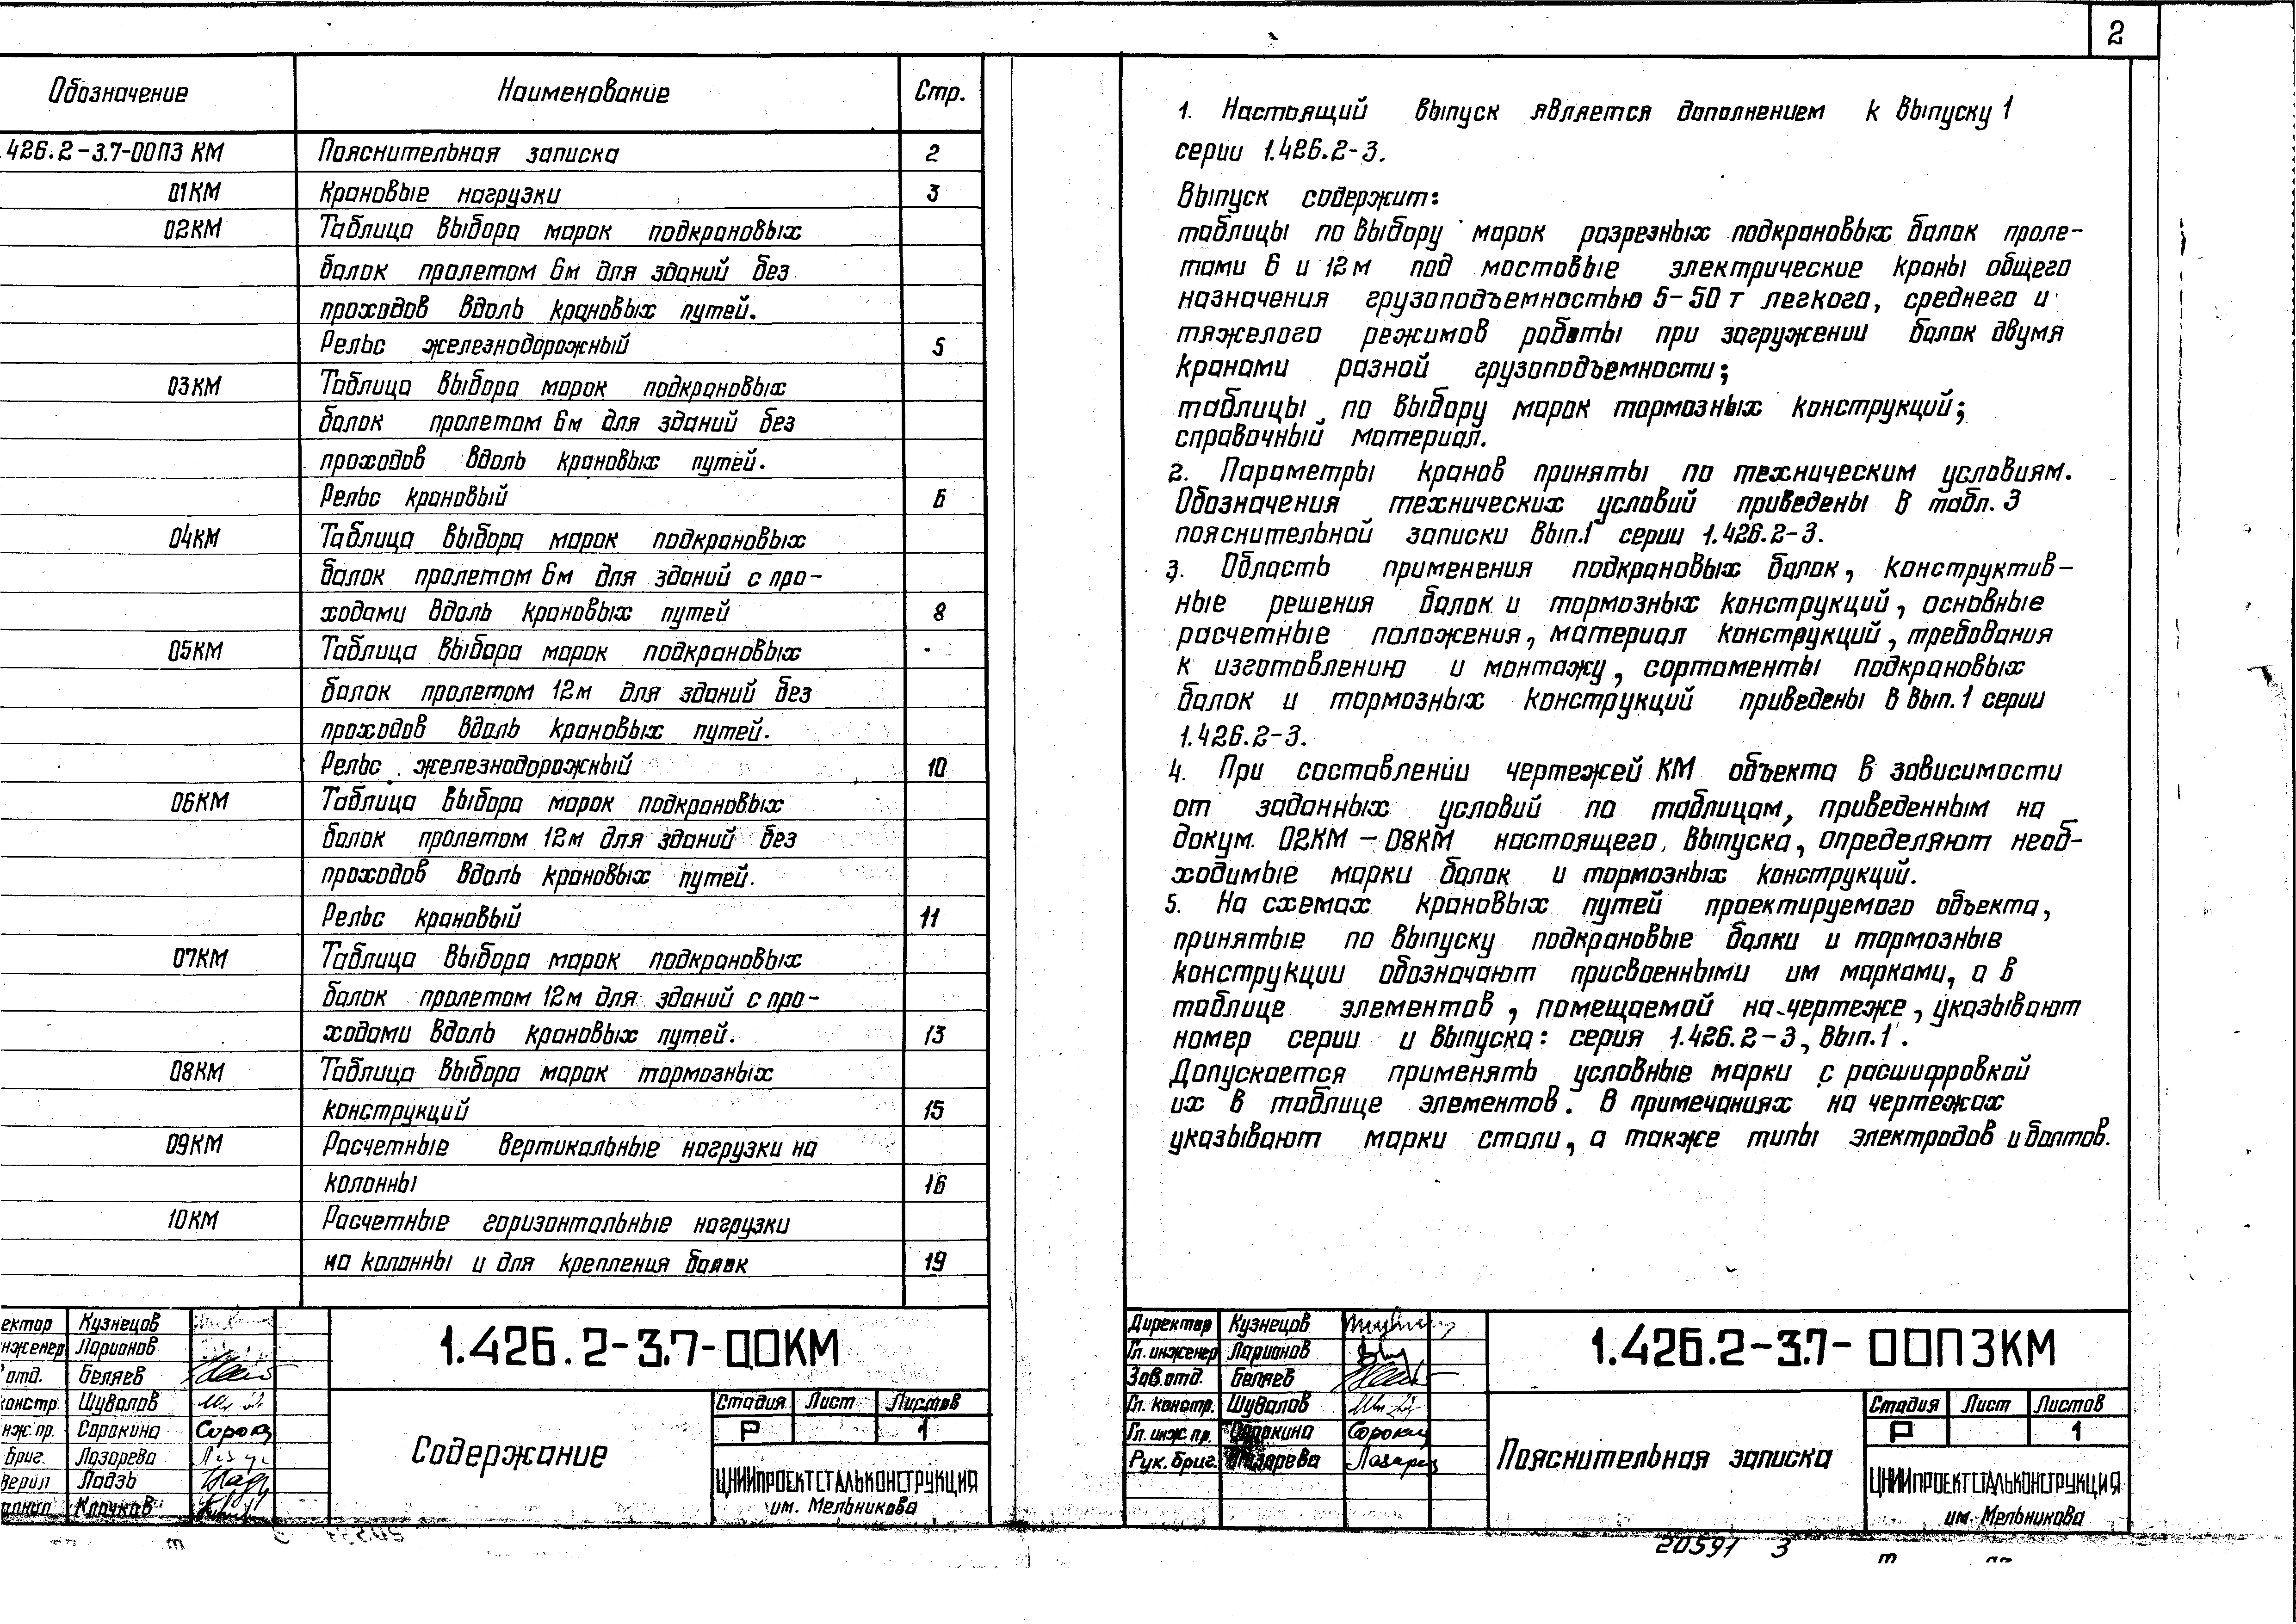 2
Обозначение Наименование Стр.
.426.2-3.7-00ПЗ КМ Пояснительная записка 2
01КМ Крановые нагрузки 3
02КМ Таблица выбора марок подкрановых
балок пролетом 6м для зданий без
проходов вдоль крановых путей.
Рельс железнодорожный 5
03КМ Таблица выбора марок подкрановых
балок пролетом 6м для зданий без
проходов вдоль крановых путей.
Рельс крановый 6
04КМ Таблица выбора марок подкрановых
балок пролетом 6м для зданий с про-
ходами вдоль крановых путей 8
05КМ Таблица выбора марок подкрановых
балок пролетом 12м для зданий без
проходов вдоль крановых путей.
Рельс железнодорожный 10
06КМ Таблица выбора марок подкрановых
балок пролетом 12м для зданий без
проходов вдоль крановых путей.
Рельс крановый 11
07КМ Таблица выбора марок подкрановых
балок пролетом 12м для зданий с про-
ходами вдоль крановых путей. 13
08КМ Таблица выбора марок тормозных
конструкций 15
09КМ Расчетные вертикальные нагрузки на
колонны 16
10КМ Расчетные горизонтальные нагрузки
на колонны и для крепления балок 19
ектор Кузнецов
нженер Ларионов
отд. Беляев
констр. Шувалов
нж.пр. Сорокина
бриг. Лазарева
верил Ладзь
1.426.2-3.7-00КМ
Содержание
Стадия Лист Листов
Р 1
ЦНИИПРОЕКТСТАЛЬКОНСТРУКЦИЯ
им. Мельникова
1. Настоящий выпуск является дополнением к выпуску 1
серии 1.426.2-3.
Выпуск содержит:
таблицы по выбору марок разрезных подкрановых балок проле-
тами 6 и 12м под мостовые электрические краны общего
назначения грузоподъемностью 5-50 т легкого, среднего и
тяжелого режимов работы при загружении балок двумя
кранами разной грузоподъемности;
таблицы по выбору марок тормозных конструкций;
справочный материал.
2. Параметры кранов приняты по техническим условиям.
Обозначения технических условий приведены в табл. 3
пояснительной записки вып.1 серии 1.426.2-3.
3. Область применения подкрановых балок, конструктив-
ные решения балок и тормозных конструкций, основные
расчетные положения, материал конструкций, требования
к изготовлению и монтажу, сортаменты подкрановых
балок и тормозных конструкций приведены в вып. 1 серии
1.426.2-3.
4. При составлении чертежей КМ объекта в зависимости
от заданных условий по таблицам, приведенным на
докум. 02КМ - 08КМ настоящего выпуска, определяют необ-
ходимые марки балок и тормозных конструкций.
5. На схемах крановых путей проектируемого объекта,
принятые по выпуску подкрановые балки и тормозные
конструкции обозначают присвоенными им марками, а в
таблице элементов, помещаемой на чертеже, указывают
номер серии и выпуска: серия 1.426.2-3, вып.1.
Допускается применять условные марки с расшифровкой
их в таблице элементов. В примечаниях на чертежах
указывают марки стали, а также типы электродов и болтов.
Директор Кузнецов
Гл. инженер Ларионов
Зав.отд. Беляев
Гл. констр. Шувалов
Гл. инж. пр. Сорокина
Рук. бриг. Лазарева
1.426.2-3.7-00ПЗКМ
Пояснительная записка
Стадия Лист Листов
Р 1
ЦНИИПРОЕКТСТАЛЬКОНСТРУКЦИЯ
им. Мельникова
20591 3